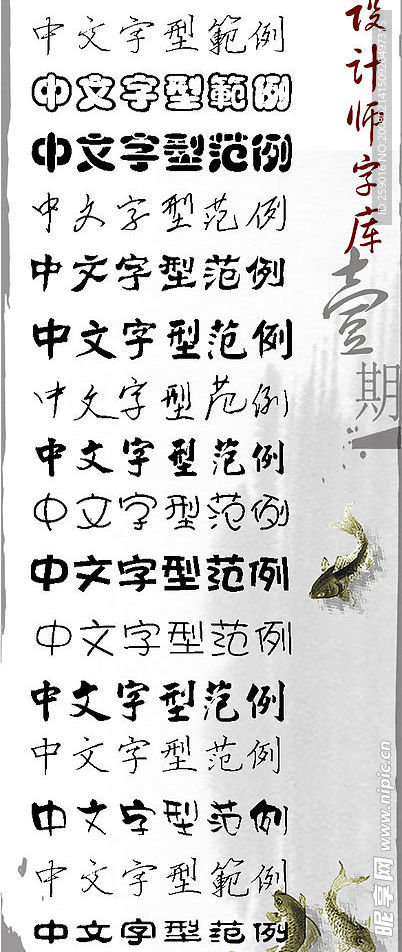 中文字型範例
中文字型範例
中文字型范例
中文字型范例
中文字型范例
中文字型范例
中文字型范例
中文字型范例
中文字型范例
中文字型范例
中文字型范例
中文字型范例
中文字型范例
中文字型范例
中文字型範例
中文字型范例
设计师字库
壹
期
昵享网 www.nipic.cn